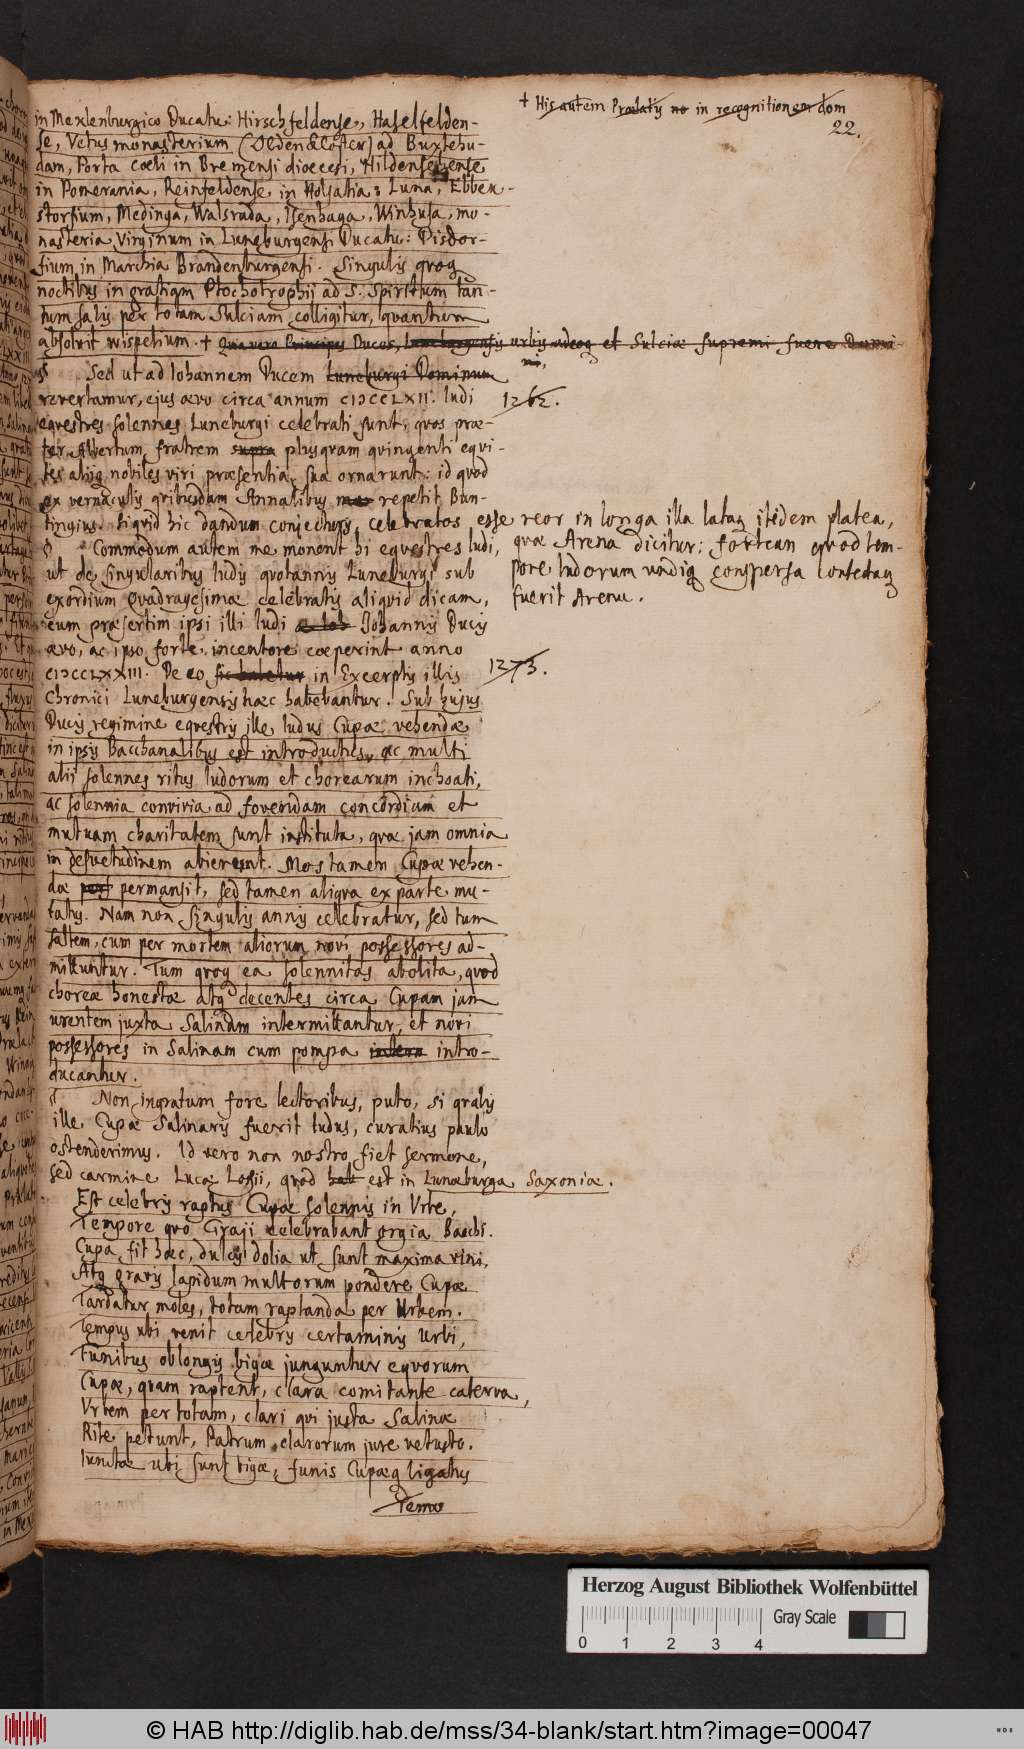 † His autem Prælatis no in recognitionem dom
22.
in Mexlenburgico Ducatu: Hirschfeldense, Haselfelden-
se, Vetus monasterium (Olden Closter) ad Buxtehu-
dam, Porta cœli in Bremensi diœcesi, Hildense
in Pomerania, Reinfeldense in Holsatia: Luna, Ebbek-
storfium, Medinga, Walsrada, Isenhaga, Winhusa, mo-
nasteria Virginum in Luneburgensi Ducatu: Disdor-
fium in Marchia Brandenburgensi. Singulis quoq
noctibus in gratiam Ptochotrophij ad S. Spiritum tan-
tum salis per totam Sulciam colligitur, quantum
absolvit wispelium. † Qua vero Principes Duces, Luneburgensis urbis adeoq et Sulciæ supremi fuere Domi-
ni,
Sed ut ad Iohannem Ducem Luneburgi Dominum
revertamur, ejus ævo circa annum CIƆCCLXII. ludi
1262.
equestres solennes Luneburgi celebrati sunt, quos præ-
ter Albertum, fratrem supra plusquam quingenti equi-
tes aliiq nobiles viri præsentia sua ornarunt: id quod
ex vernaculis quibusdam Annalibus repetit Bun-
tingius. Siquid hic dandum conjecturis, celebratos esse reor in longa illa lataq itidem platea,
quæ Arena dicitur: fortean quod tem-
pore ludorum undiq conspersa contectaq
fuerit Arena.
Commodum autem me monent hi equestres ludi,
ut de singularibus ludis quotannis Luneburgi sub
exordium Quadragesimæ celebratis aliquid dicam,
cum præsertim ipsi illi ludi Iohannis Ducis
ævo, ac ipso forte incentore cœperint anno
CIƆCCLXXIII. De eo sic habetur in Excerptis illis
1273.
Chronici Luneburgensis hæc habebantur. Sub hujus
Ducis regimine equestris ille ludus Cupæ vehendæ
in ipsis Bacchanalibus est introductus, ac multi
alij solennes ritus ludorum et chorearum inchoati,
ac solennia convivia ad fovendam concordiam et
mutuam charitatem sunt instituta, quæ jam omnia
in desuetudinem abierunt. Mos tamen Cupæ vehen-
dæ post permansit, sed tamen aliqua ex parte mu-
tatus. Nam non singulis annis celebratur, sed tum
saltem, cum per mortem aliorum novi possessores ad-
mittuntur. Tum quoq ea solennitas abolita, quod
choreæ honestæ atq decentes circa Cupam jam
urentem juxta Salinam intermittantur, et novi
possessores in Salinam cum pompa intro-
ducantur.
Non ingratum fore lectoribus, puto, si qualis
ille Cupæ Salinaris fuerit ludus, curatius paulo
ostenderimus. Id vero non nostro fiet sermone,
sed carmine Lucæ Lossii, quod hab est in Lunæburga Saxoniæ.
Est celebris raptus Cupæ solennis in Urbe,
Tempore quo Graji celebrabant orgia Bacchi.
Cupa fit hæc, dulcis dolia ut sunt maxima vini,
Atq gravis lapidum multorum pondere Cupæ
Tardatur moles, totam raptanda per Urbem.
Tempus ubi venit celebris certaminis Urbi,
Funibus oblongis bigæ junguntur equorum
Cupæ, quam raptent, clara comitante caterva,
Urbem per totam, clari qui justa Salinæ
Rite petunt, Patrum clarorum jure vetusto.
Iunctæ ubi sunt bigæ, funis Cupæq ligatus
Temo
Herzog August Bibliothek Wolfenbüttel
Gray Scale
0 1 2 3 4
© HAB http://diglib.hab.de/mss/34-blank/start.htm?image=00047